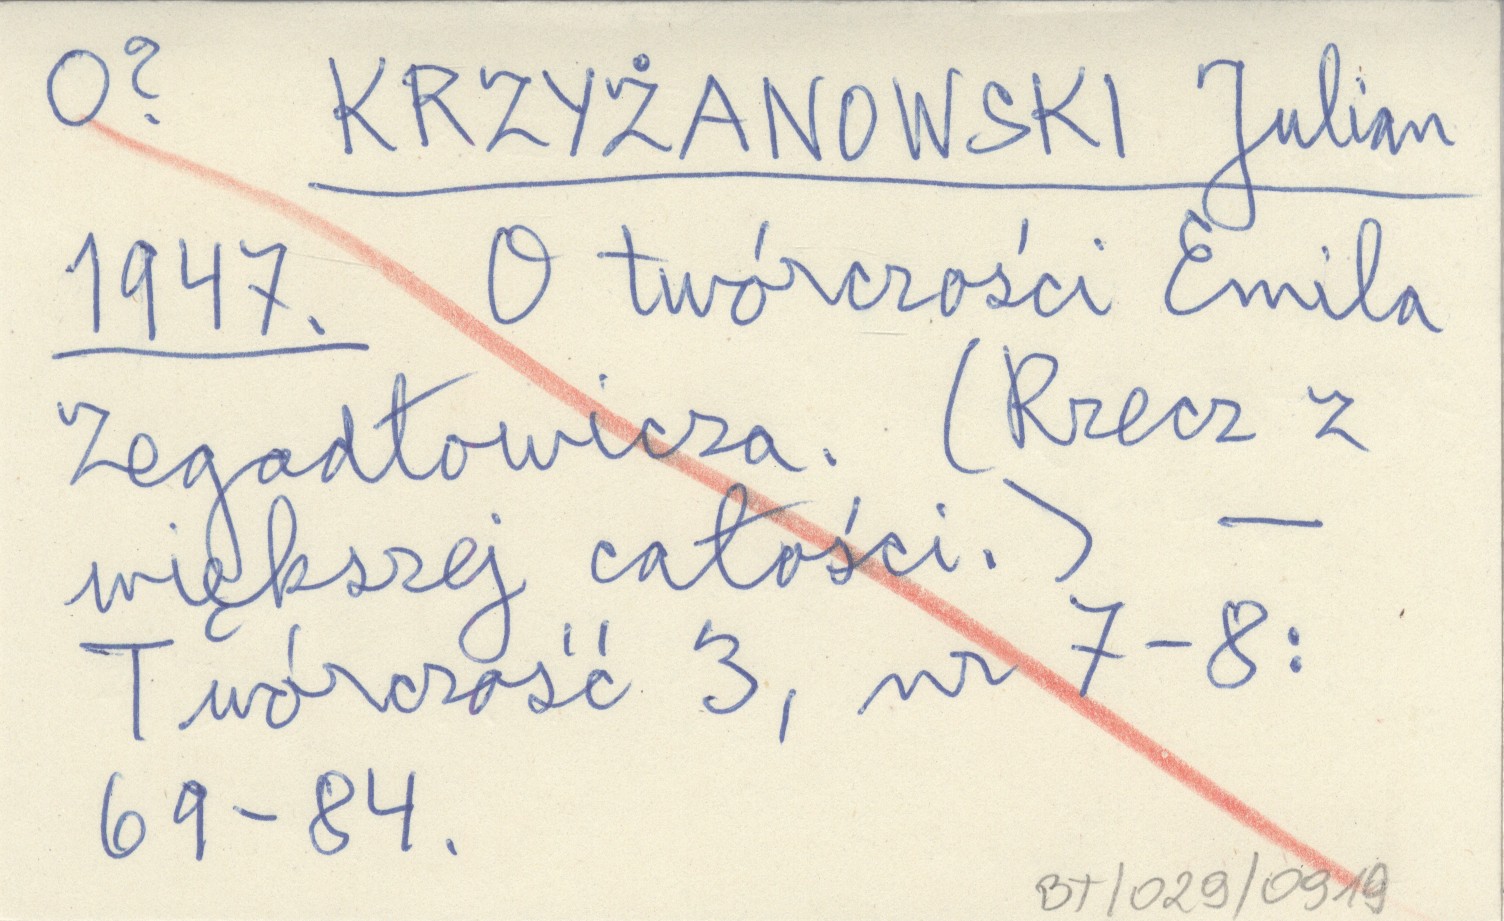 O? KRZYŻANOWSKI Julian
1947. O twórczości Emila
Zegadłowicza. (Rzecz z
większej całości.) —
Twórczość 3, nr 7-8:
69-84.
BT/029/0919